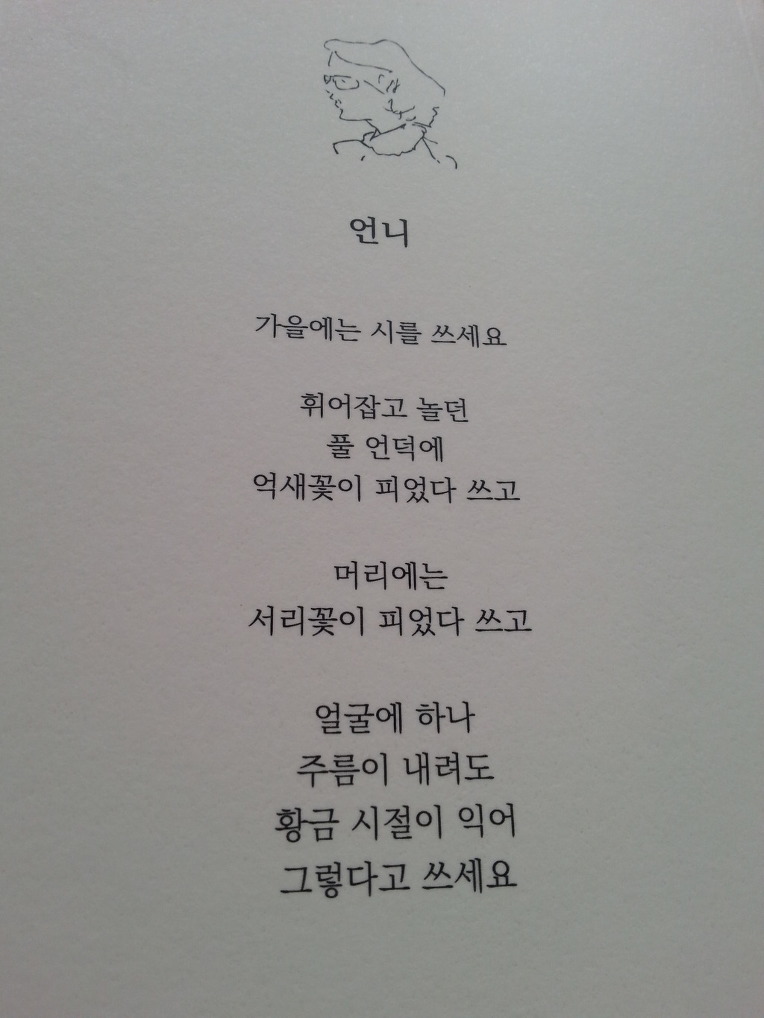 언니
가을에는 시를 쓰세요
휘어잡고 놀던
풀 언덕에
억새꽃이 피었다 쓰고
머리에는
서리꽃이 피었다 쓰고
얼굴에 하나
주름이 내려도
황금 시절이 익어
그렇다고 쓰세요